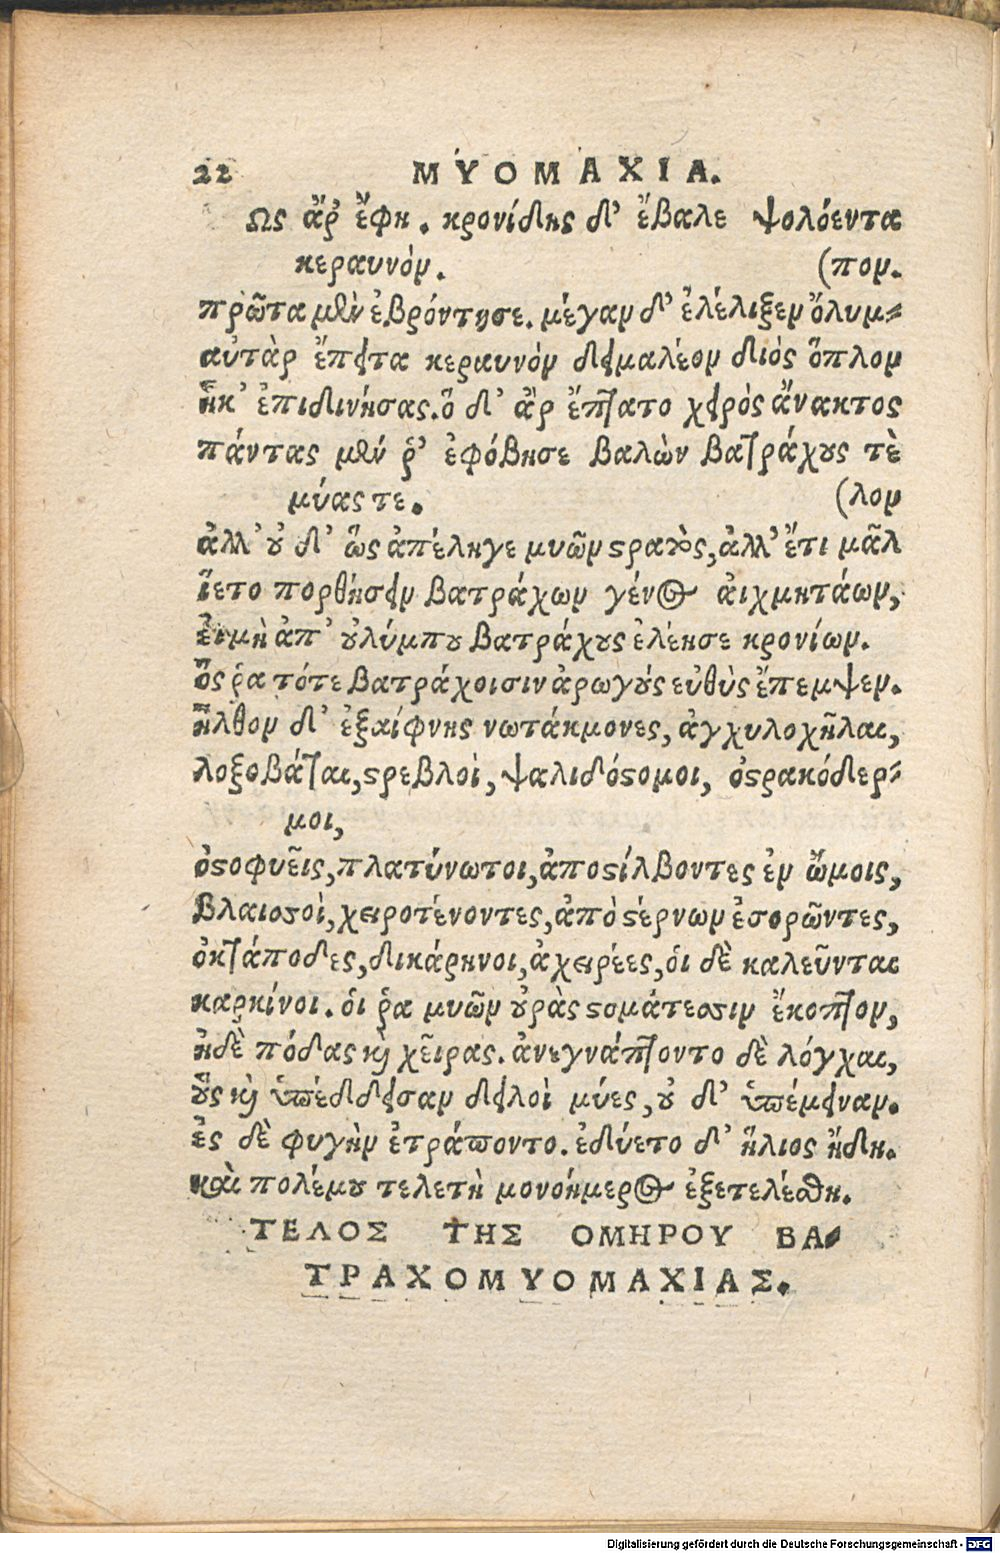 22 ΜΥΟΜΑΧΙΑ.
Ως ἄρ' ἔφη. κρονίδης δ' ἔβαλε ψολόεντα
κεραυνὸν. (πον.
πρῶτα μὲν ἐβρόντησε. μέγαν δ' ἐλέλιξεν ὄλυμ-
αὐτὰρ ἔπειτα κεραυνὸν δειμαλέον διὸς ὅπλον
ἧκ' ἐπιδινήσας. ὃ δ' ἂρ ἔπτατο χειρὸς ἄνακτος
πάντας μὲν ῥ' ἐφόβησε βαλὼν βατράχους τὲ
μύας τε. (λον
ἀλλ' οὐ δ' ὣς ἀπέληγε μυῶν στρατὸς, ἀλλ' ἔτι μᾶλ
ἵετο πορθήσειν βατράχων γένος αἰχμητάων,
εἰ μὴ ἀπ' οὐλύμπου βατράχους ἐλέησε κρονίων.
ὅς ῥα τότε βατράχοισιν ἀρωγοὺς εὐθὺς ἔπεμψεν.
ἦλθον δ' ἐξαίφνης νωτάκμονες, ἀγχυλοχῆλαι,
λοξοβάται, στρεβλοὶ, ψαλιδόστομοι, ὀστρακόδερ-
μοι,
ὀστοφυεῖς, πλατύνωτοι, ἀποστίλβοντες ἐν ὤμοις,
βλαισσοὶ, χειροτένοντες, ἀπὸ στέρνων ἐσορῶντες,
ὀκτάποδες, δικάρηνοι, ἀχειρέες, οἱ δὲ καλεῦνται
καρκίνοι. οἵ ῥα μυῶν οὐρὰς στομάτεσσιν ἔκοπτον,
ἠδὲ πόδας καὶ χεῖρας. ἀνεγνάπτοντο δὲ λόγχαι,
οὓς καὶ ὑπέδδεισαν δειλοὶ μύες, οὐ δ' ὑπέμειναν.
ἐς δὲ φυγὴν ἐτράποντο. ἐδύετο δ' ἥλιος ἤδη.
καὶ πολέμου τελετὴ μονοήμερος ἐξετελέσθη.
ΤΕΛΟΣ ΤΗΣ ΟΜΗΡΟΥ ΒΑ-
ΤΡΑΧΟΜΥΟΜΑΧΙΑΣ.
Digitalisierung gefördert durch die Deutsche Forschungsgemeinschaft - DFG